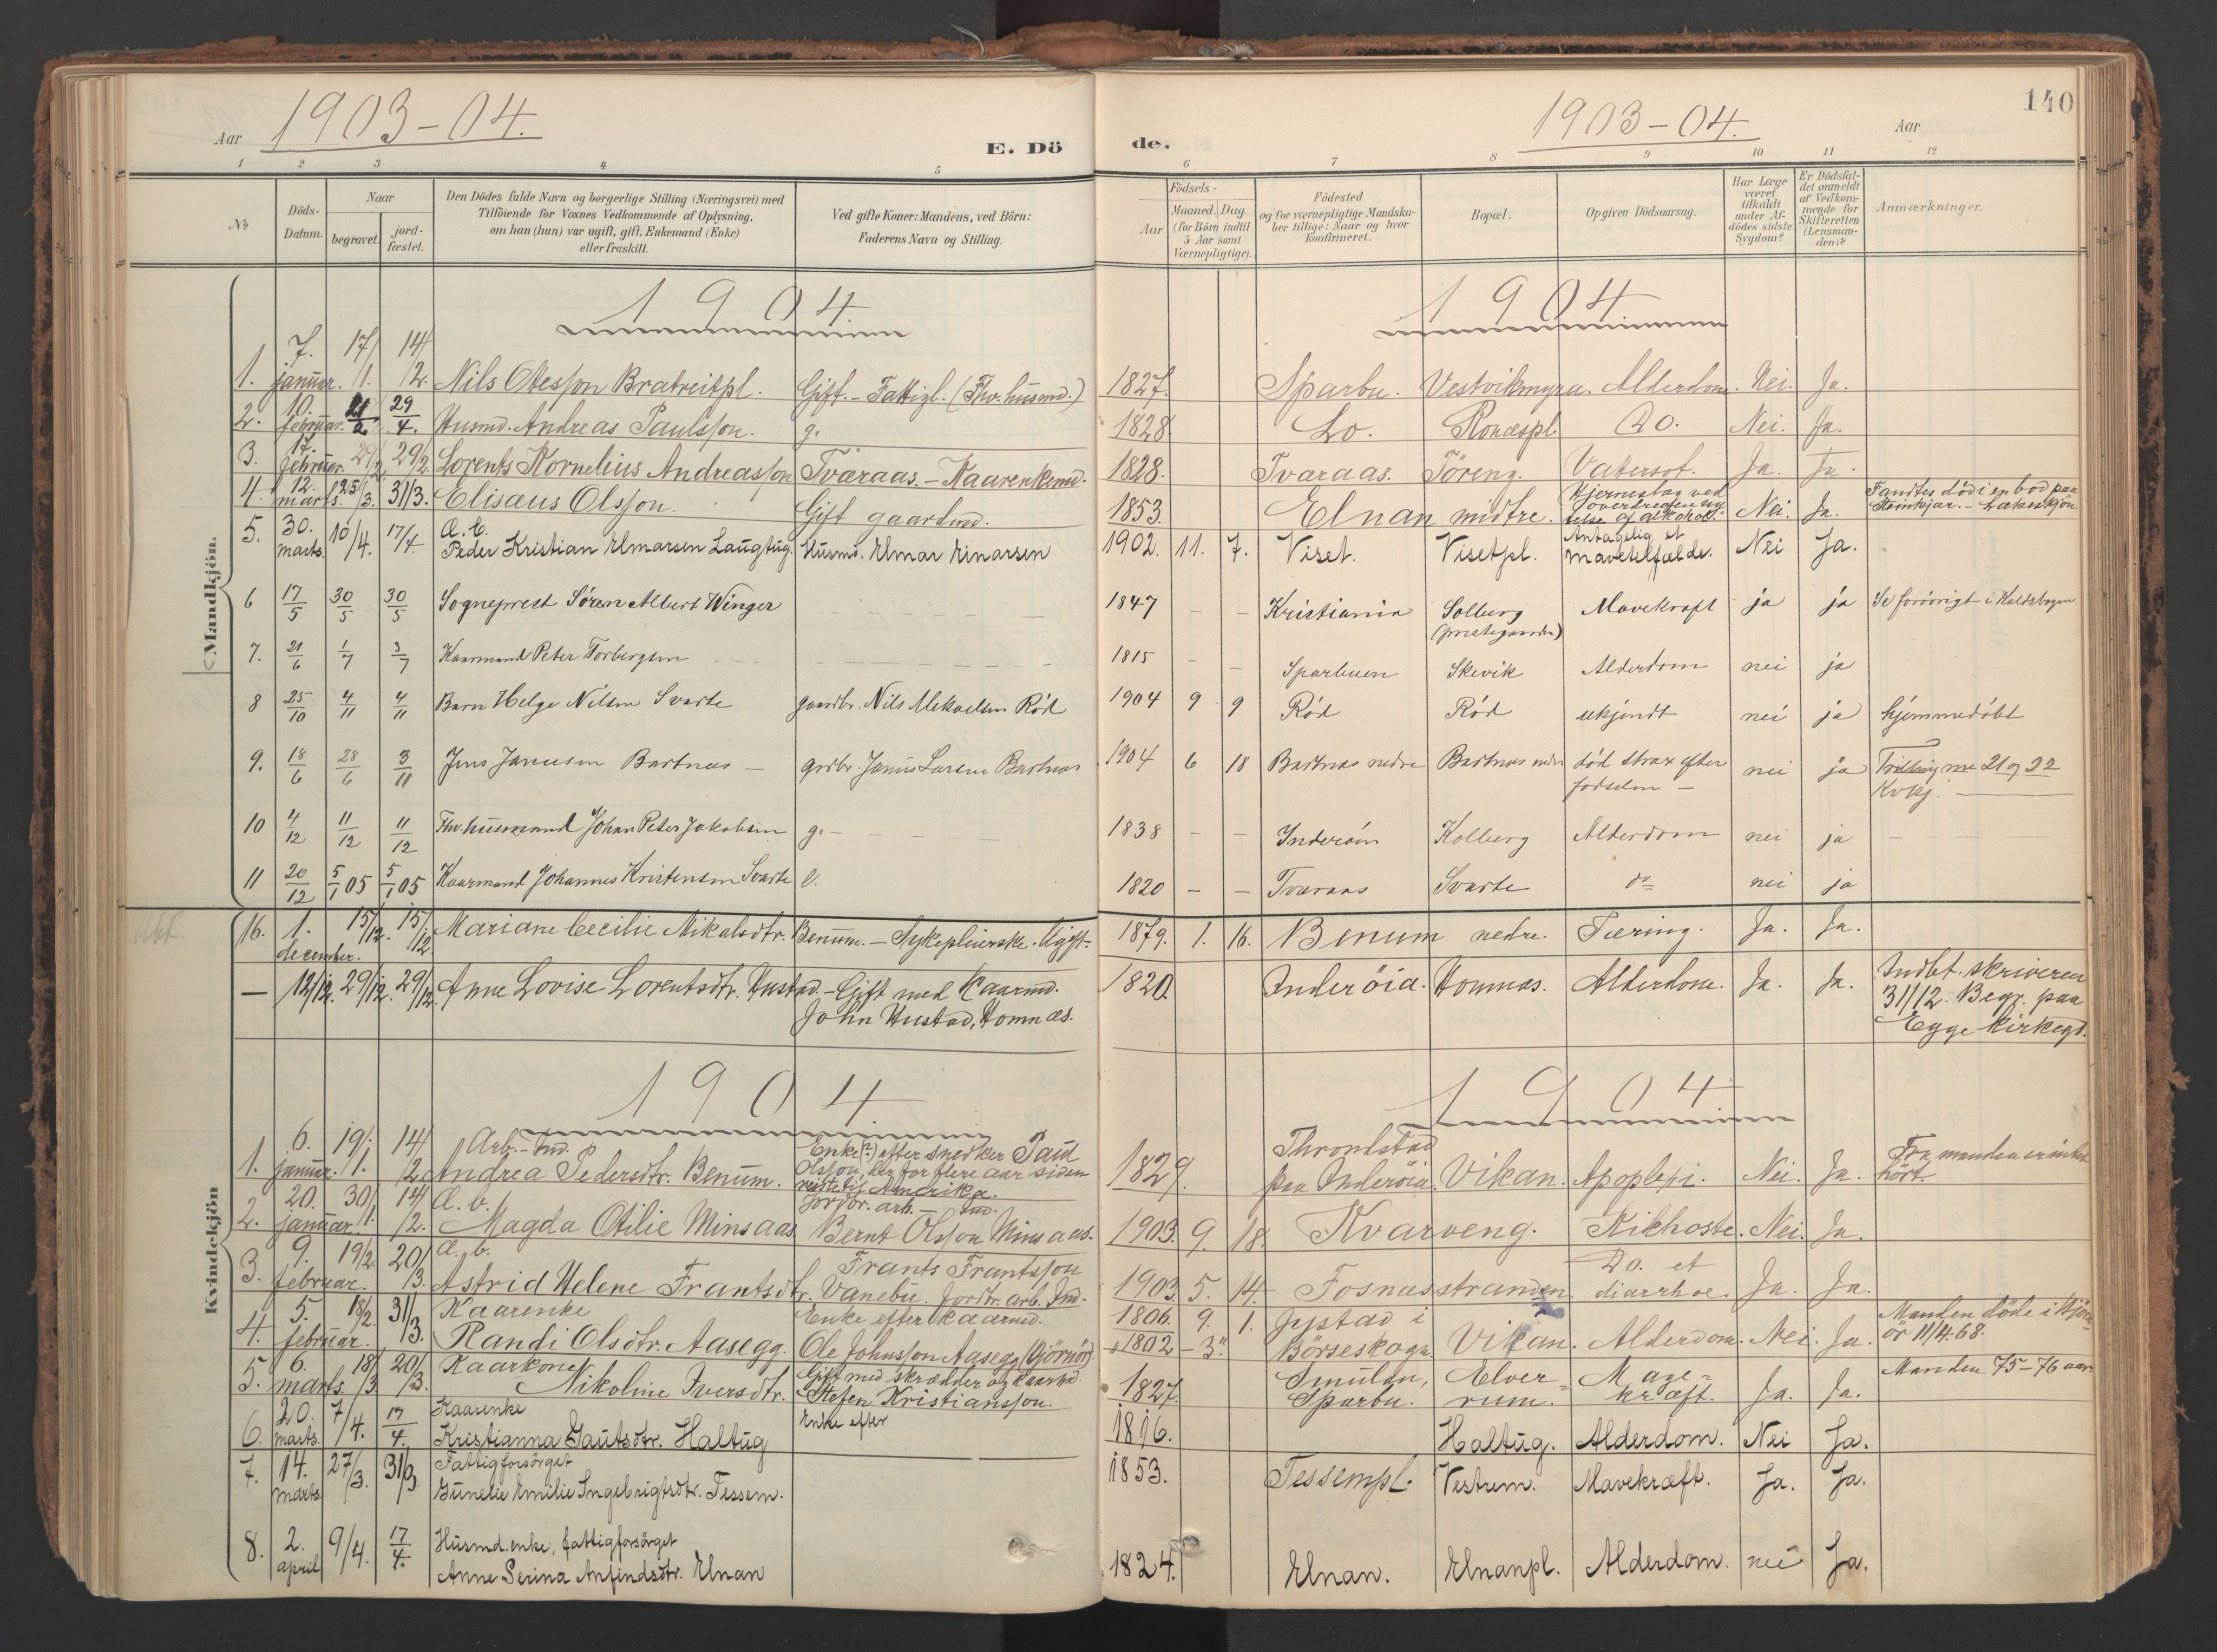 140
Aar 1903-04.
E. Dö de.
1903-04. Aar
1 2 3 4 5 6 7 8 9 10 11 12
№
Döds-Datum.
Naar
begravet.
jord-fæstet.
Den Dödes fulde Navn og borgerlige Stilling (Næringsvei) med
Tilföiende for Voxnes Vedkommende af Oplysning,
om han (hun) var ugift, gift, Enkemand (Enke)
eller fraskilt.
Ved gifte Koner: Mandens, ved Börn:
Faderens Navn og Stilling.
Födsels-
Aar
Maaned. Dag.
(for Börn indtil
5 Aar samt
Værnepligtige).
Födested
og for værnepligtige Mandska-
ber tillige: Naar og hvor
konfirmeret.
Bopæl.
Opgiven Dödsaarsag.
Har Læge
været
tilkaldt
under Af-
dödes sidste
Sygdom?
Er Dödsfal-
det anmeldt
af Vedkom-
mende for
Skifteretten
(Lensman-
den)?
Anmærkninger.
Mandkjön.
1904 1904
1. 7. januar. 17/1. 14/2. Nils Olesson Bratreitpl. Gift. - Fattigl. (Fhv. husmd.) 1827. Sparbu. Vestvikmyra. Alderdom. Nei. Ja.
2. 10. februar. 21/2 29/4. Husmd. Andreas Paulsson. g. 1828. Lo. Do. Nei. Ja.
3. 17. februar. 29/2 29/2. Lorents Kornelius Andreasson Tværaas. - Kaarenkemd. 1828. Tværaas. Vatersot. Ja. Ja.
4. 12. marts. 25/3. 31/3. Elisæus Olsson. Gift gaardmd. 1853. Elnan midtre. Hjerneslag ved overdreven ny-telse af alkohol. Nei. Ja. Fandtes död i en bod paa Steinkjær.
5. 30. marts. 10/4. 17/4 Peder Kristian Elmarsen Laugtug. Husmd. Elmar Einarsen 1902. 11. 7. Viset. Visetpl. Antagelig et mavetilfælde. Nei Ja.
6 17/5 30/5 30/5 Sogneprest Sören Albert Winger 1847 - - Kristiania Solberg (prestegaarden) Mavekræft ja ja Se forövrigt i Kaldsbogen
7. 21/6 1/7 3/7 Kaarmand Peter Torbergsen 1815 - - Sparbuen Skevik Alderdom nei ja
8 25/10 4/11 4/11 Barn Helge Nilsen Svarte gaardbr. Nils Mikaelsen Röd 1904 9 9 Röd Röd ukjendt nei ja hjemmedöbt
9. 18/6 28/6 3/11 Jens Janusen Bartnæs - grdbr. Janus Larsen Bartnæs 1904 6 18 Bartnæs nedre Bartnæs nedre död strax efter födselen - nei ja Trilling me 21 og 22 Kvkj.
10 4/12 11/12 11/12 Fhv. husmand Johan Peter Jakobsen g. - 1838 - - Inderöen Kolberg Alderdom nei ja
11 20/12 5/1 05 5/1 05 Kaarmand Johannes Kristensen Svarte e. 1820 - - Tværaas Svarte do nei ja
16. 1. december. 15/12. 15/12 Mariane Cecilie Mikalsdtr. Benum. - Sykepleierske. Ugift. 1879. 1. 16. Benum nedre. Tæring. Ja. Ja.
- 12/12. 29/12. 29/12. Anne Lovise Lorentsdtr. Hustad. - Gift med Kaarmd. John Hustad, Homnæs. 1820. Inderöia. Homnæs. Alderdom. Ja. Ja. Indbt. skriveren 31/12. Begr. paa Egge kirkegd.
Kvindekjön
1904 1904
1. 6. januar. 19/1. 14/2 Arb. - Ind. Andrea Pedersdtr. Benum. Enke(?) efter snedker Paul Olsson, der for flere aar siden reiste til Amerika. 1829. Throndstad paa Inderöia. Vikan. Apoplexi. Nei. Ja. Fra manden er intet hört.
2. 20. januar. 30/1. 14/2. Æ. b. Magda Otilie Minsaas. Jordbr. arb. - Ind. Bernt Olsson Minsaas. 1903. 9. 18. Kvarveng. Kikhoste. Nei. Ja.
3. 9. februar. 19/2. 20/3. Æ. b. Astrid Helene Frantsdtr. Frants Frantsson Vanebu. Jordbr. arb. Ind. 1903. 5. 14. Fosnæsstranden. Do. et diarrhoe. Ja. Ja.
4. 5. februar. 18/2. 31/3. Kaarenke Randi Olsdtr. Aasegg. Enke efter kaarmd. Ole Johnsson Aasegg (Gjörnör). 1806. 9. 1. + 1802 - 3." Jystad i Börseskogn. Vikan. Alderdom. Nei. Ja. Manden döde i Gjörnör 11/4. 68.
5. 6. marts. 18/3 20/3. Kaarkone Nikoline Iversdtr. Gift med skrædder og kaarmd. Stefen Kristiansson. 1827. Smulan, Sparbu. Elverum. Mavekræft. Ja. Ja. Manden 75-76 aar
6. 20. marts. 7/4. 17/4. Kaarenke Kristianna Gautsdtr. Haltug Enke efter 1816. Haltug. Alderdom. Nei Ja.
7. 14. marts 27/3. 31/3. Fattigforsörget Gunelie Emilie Ingebrigtsdtr. Tessem. 1853. Tessempl. Vestrem. Mavekræft. Ja. Ja.
8. 2. april 9/4. 17/4. Husmd. enke, fattigforsörget Anne Serina Anfindsdtr. Elnan 1824. Elnan. Elnanpl. Alderdom. nei Ja.